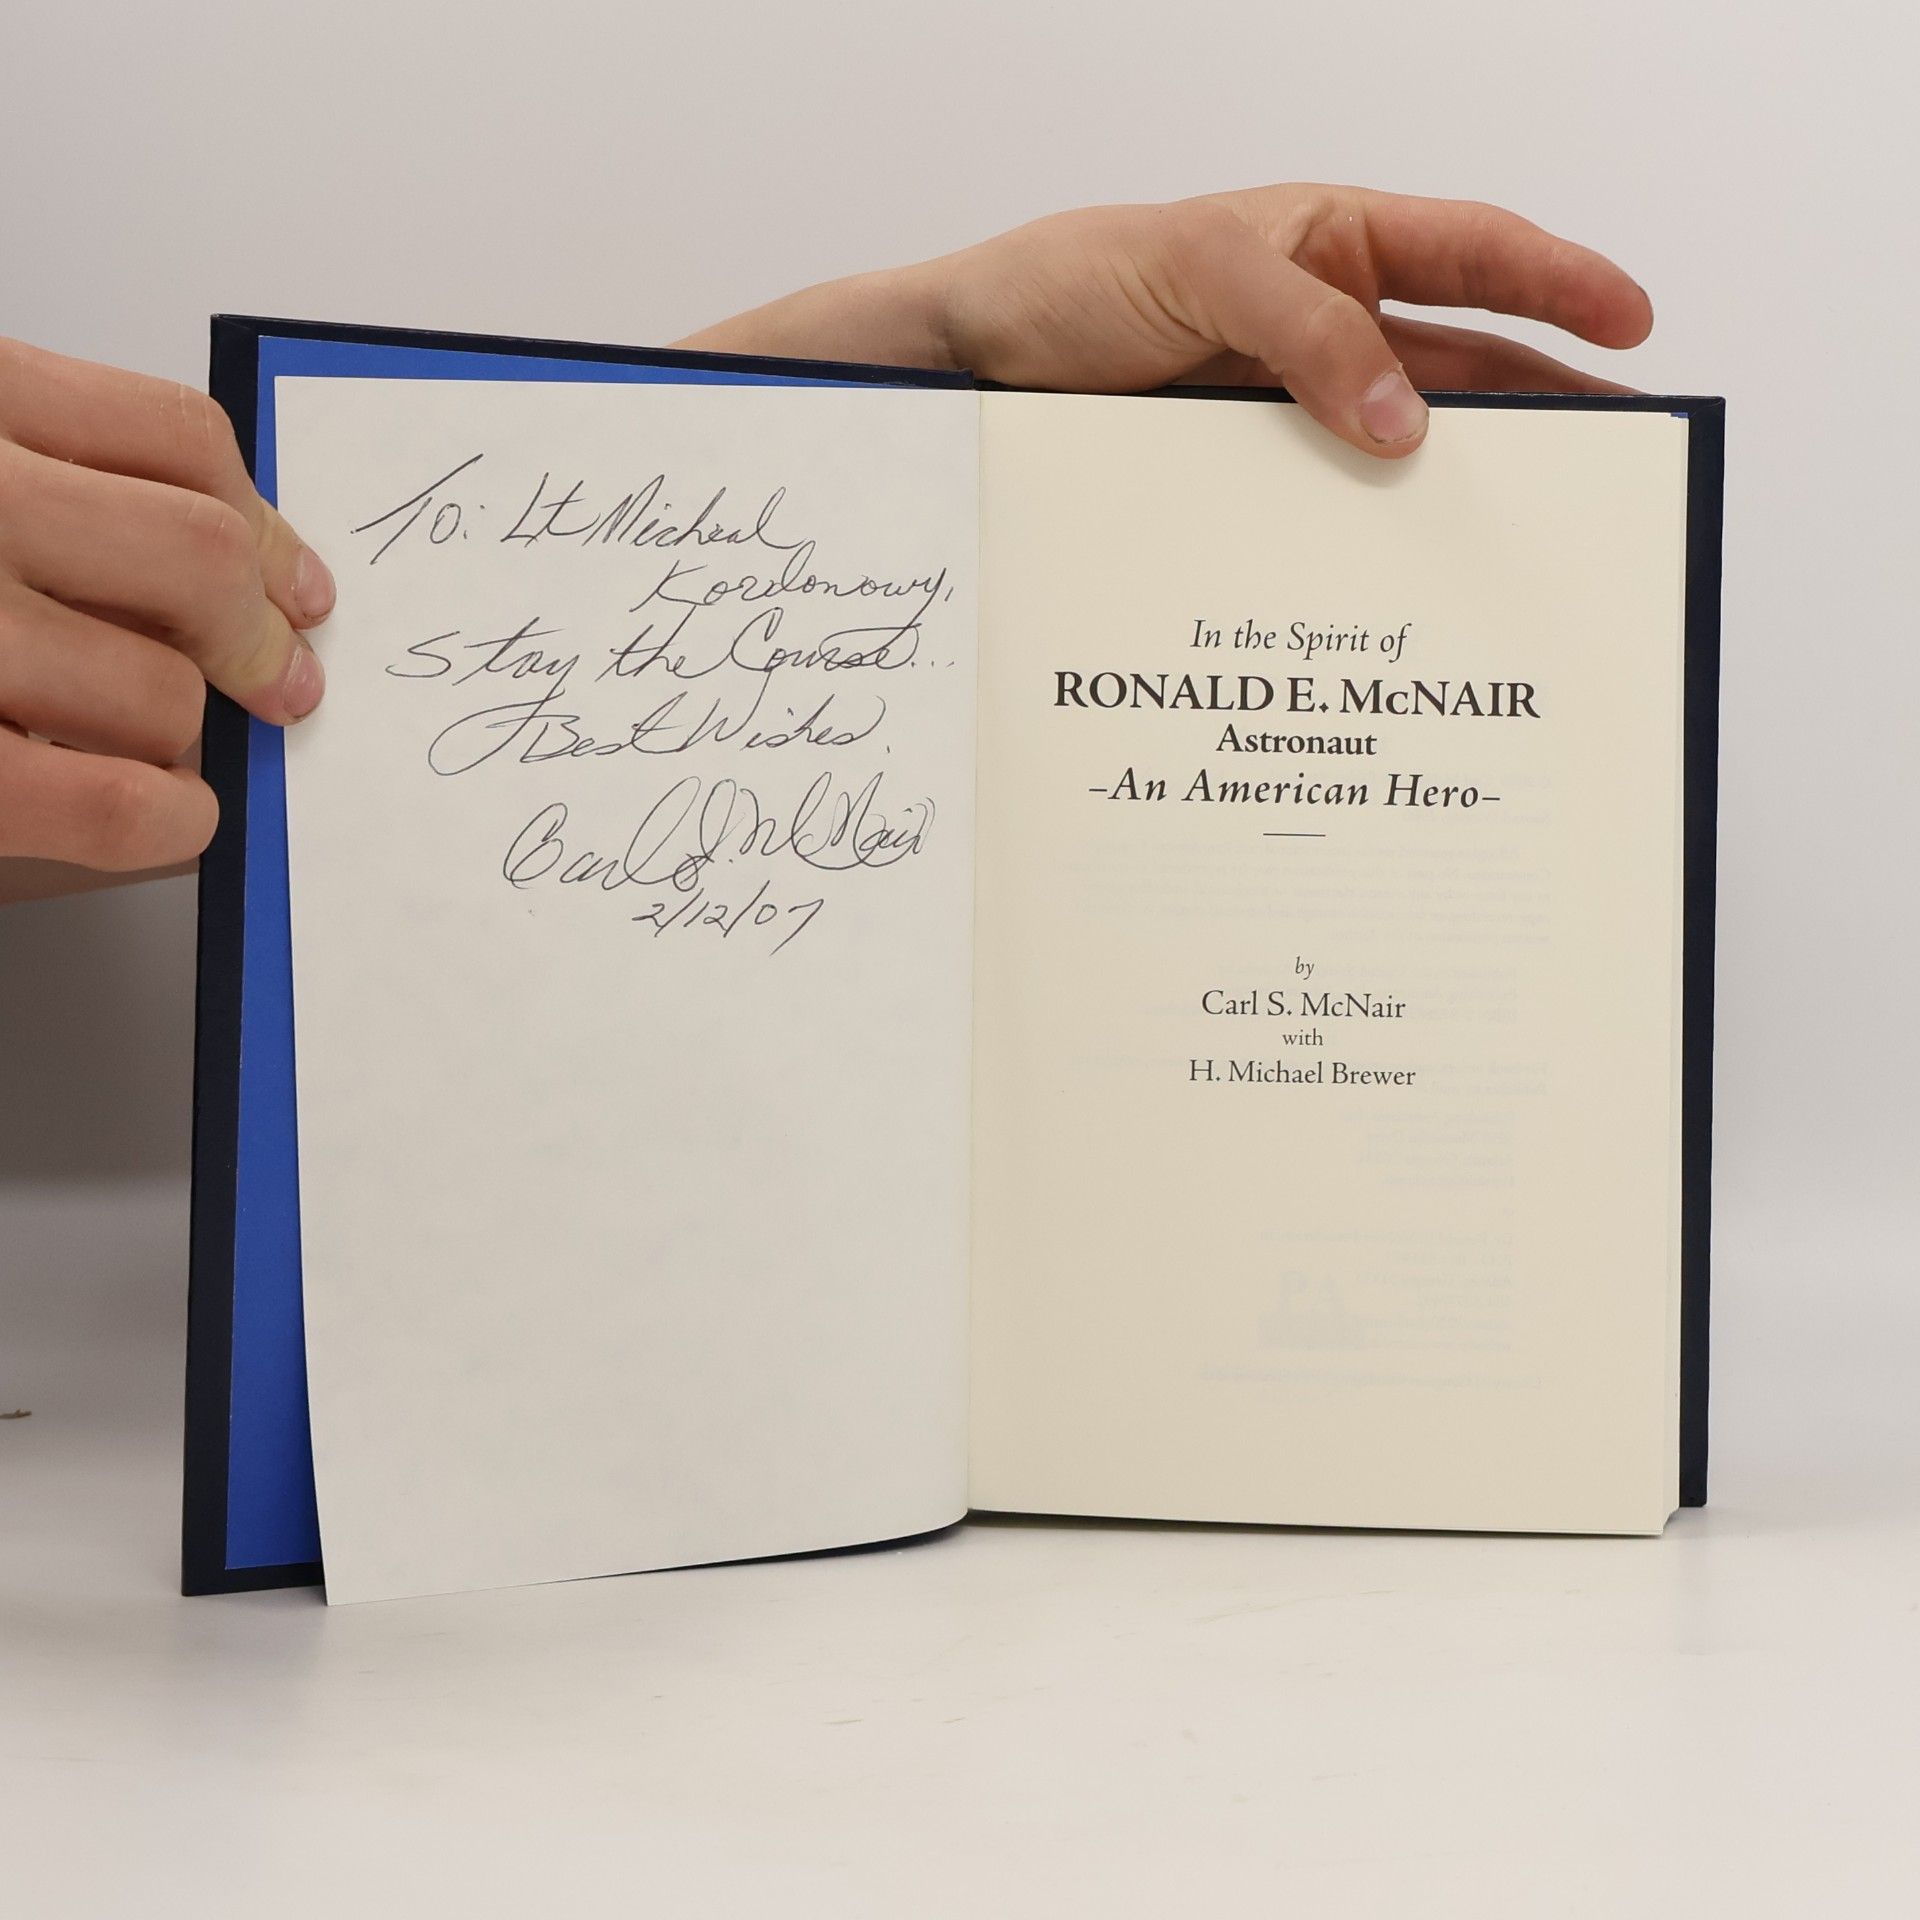 To: Lt Micheal
Kordonowy,
Stay the Course...
Best Wishes.
Carl S. McNair
2/12/07
In the Spirit of
RONALD E. McNAIR
Astronaut
–An American Hero–
by
Carl S. McNair
with
H. Michael Brewer